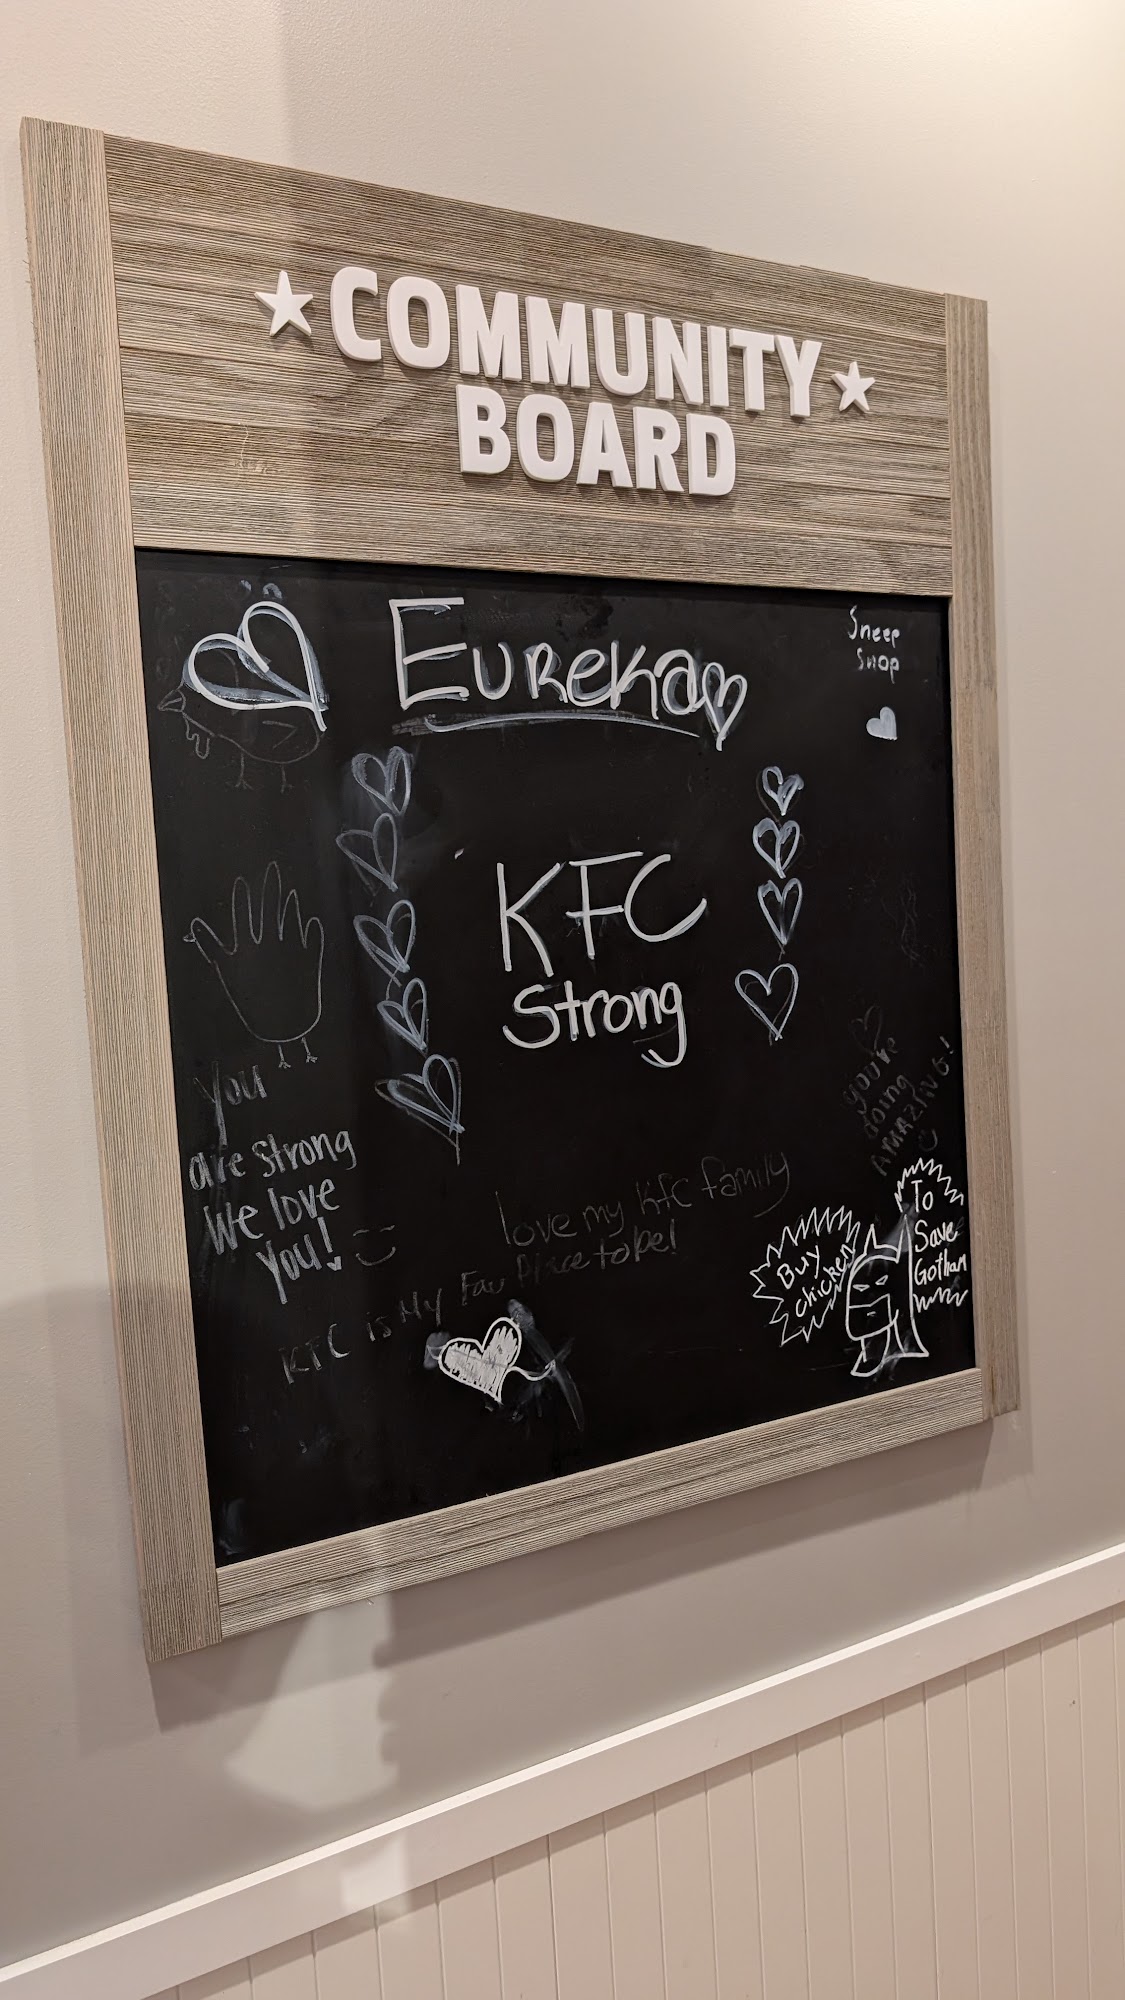 COMMUNITY
BOARD
Eureka
Sneep
Snop
KFC
Strong
You
are strong
We love
you!
you're
doing
AMAZING!
love my KFC family
KFC is My Fav Place to be!
Buy
chicken
To
Save
Gotham